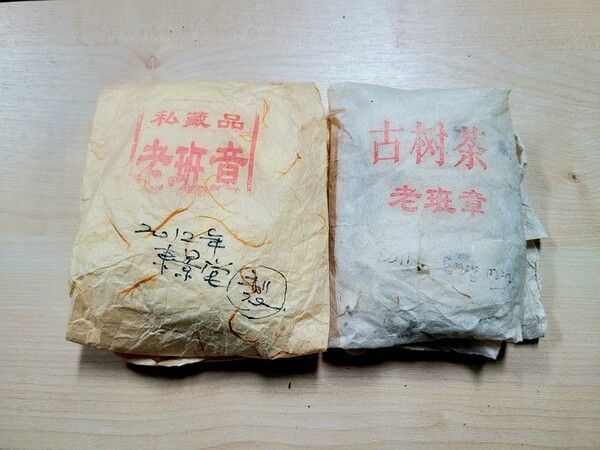 私藏品
老班章
2012年
東景堂
古树茶
老班章
2011